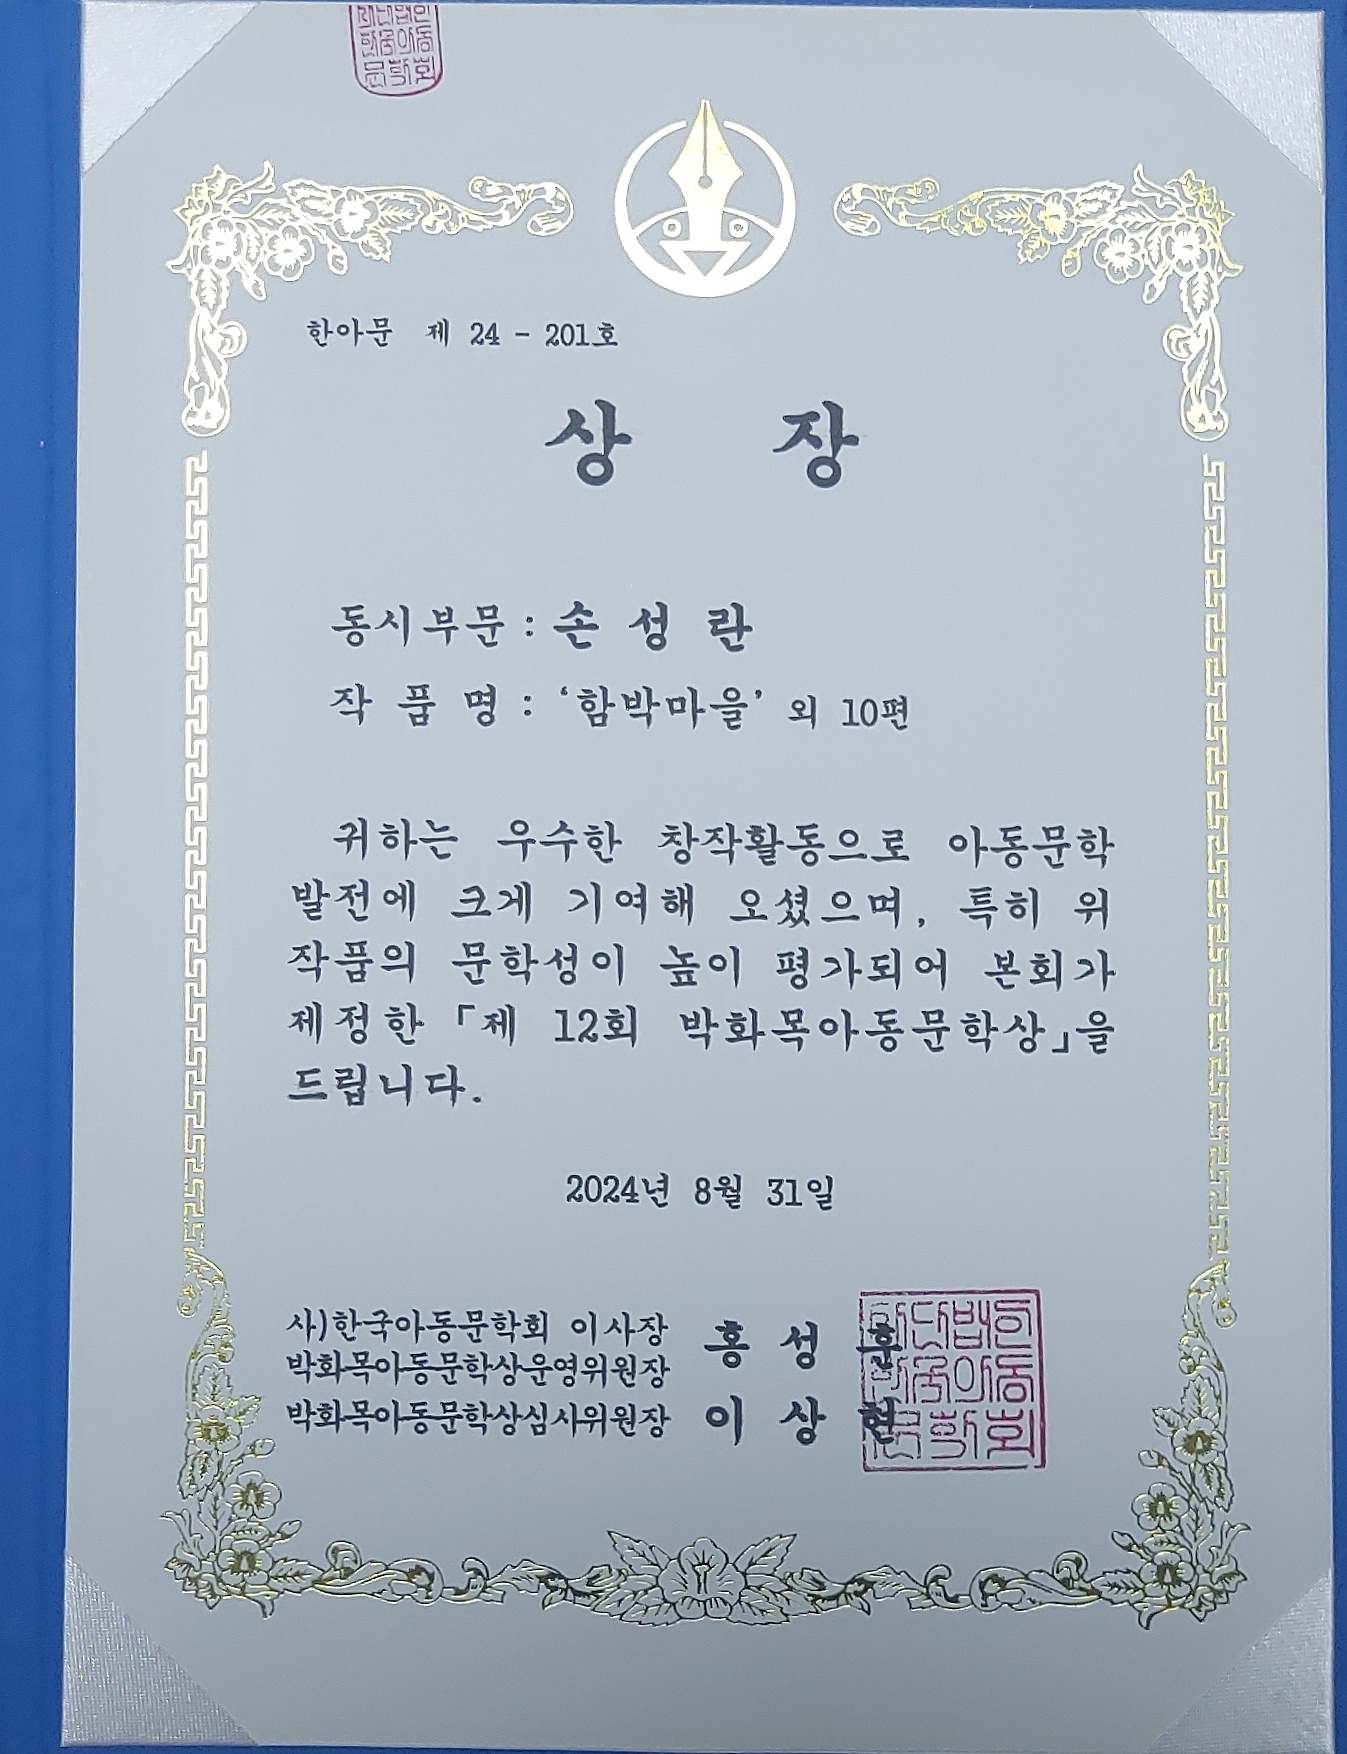 한아문 제 24 - 201호
상 장
동시부문 : 손 성 란
작 품 명 : ‘함박마을’ 외 10편
귀하는 우수한 창작활동으로 아동문학
발전에 크게 기여해 오셨으며, 특히 위
작품의 문학성이 높이 평가되어 본회가
제정한 「제 12회 박화목아동문학상」을
드립니다.
2024년 8월 31일
사)한국아동문학회 이사장
박화목아동문학상운영위원장
홍 성 훈
박화목아동문학상심사위원장 이 상 현